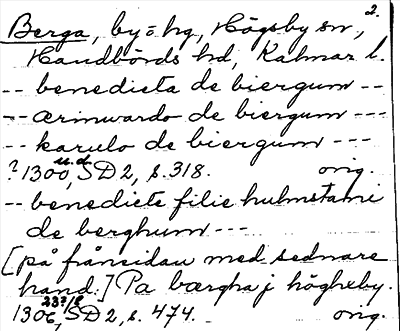 2.
Berga, by o. hg, Högsby sn,
Handbörds hd, Kalmar l.
-- benedicta de biergum ---
-- ærinwardo de biergum ---
-- karulo de biergum ---
? 1300 u.d., SD 2, s. 318. orig.
-- benedicte filie hulmstani
de berghum ---
[på frånsidan med sednare
hand.] Pa bærgha j höghxby.
1306 23?/8, SD 2, s. 474. orig.